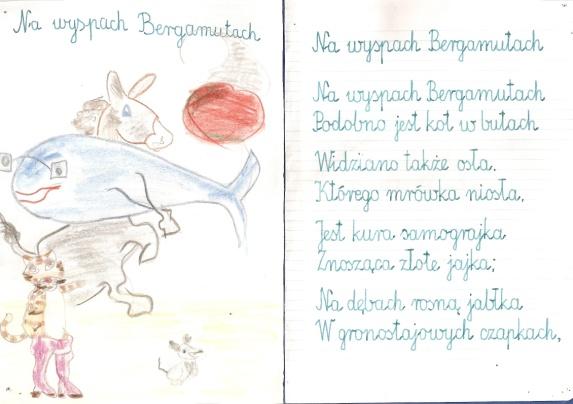 Na wyspach Bergamutach
Na wyspach Bergamutach
Na wyspach Bergamutach
Podobno jest kot w butach
Widziano także osła.
Którego mrówka niosła,
Jest kura samograjka
Znosząca złote jajka;
Na dębach rosną jabłka
W gronostajowych czapkach,